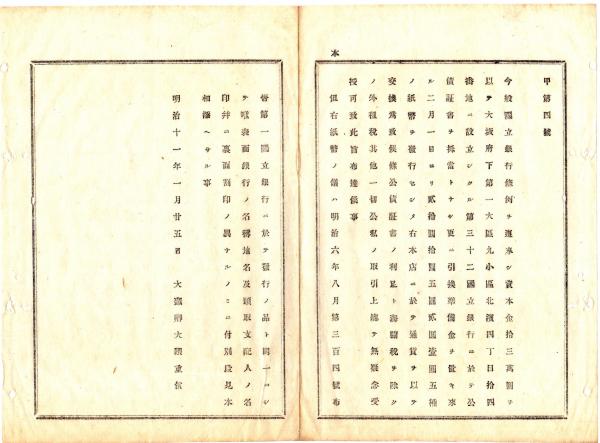 甲第四號
今般國立銀行條例ヲ遵奉シ資本金拾三萬圓ヲ
以テ大坂府下第一大區九小區北濱四丁目拾四
番地ニ設立シタル第三十二國立銀行ニ於テ公
債証書ヲ抵當トナシ更ニ引換準備金ヲ備ヘ來
ル二月一日ヨリ貳拾圓拾圓五圓貳圓壹圓五種
ノ紙幣ヲ發行セシメ右本店ニ於テ通貨ヲ以テ
交換爲致候條公債証書ノ利息ト海關税ヲ除ク
ノ外租税其他一切公私ノ取引上總テ無疑念受
授可致此旨布達候事
但右紙幣ノ儀ハ明治六年八月第三百四號布
本
告第一國立銀行ニ於テ發行ノ品ト同一ニシ
テ唯表面銀行ノ名稱地名及頭取支配人ノ名
印并ニ裏面割印ノ異ナルノミニ付別段見本
相添ヘサル事
明治十一年一月廿五日 大藏卿大隈重信